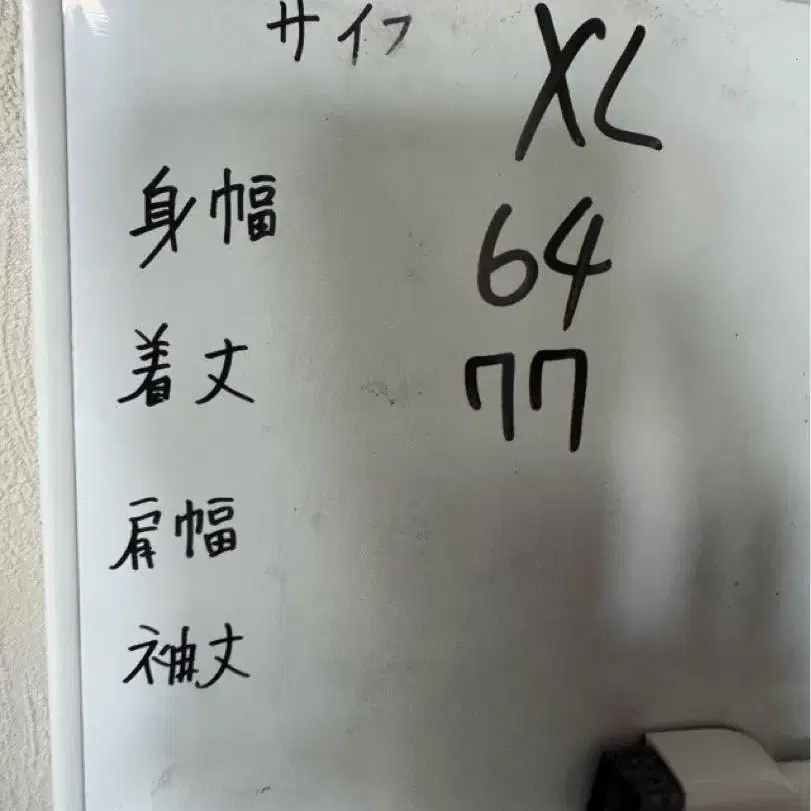 サイフ XL
身幅 64
着丈 77
肩幅
袖丈